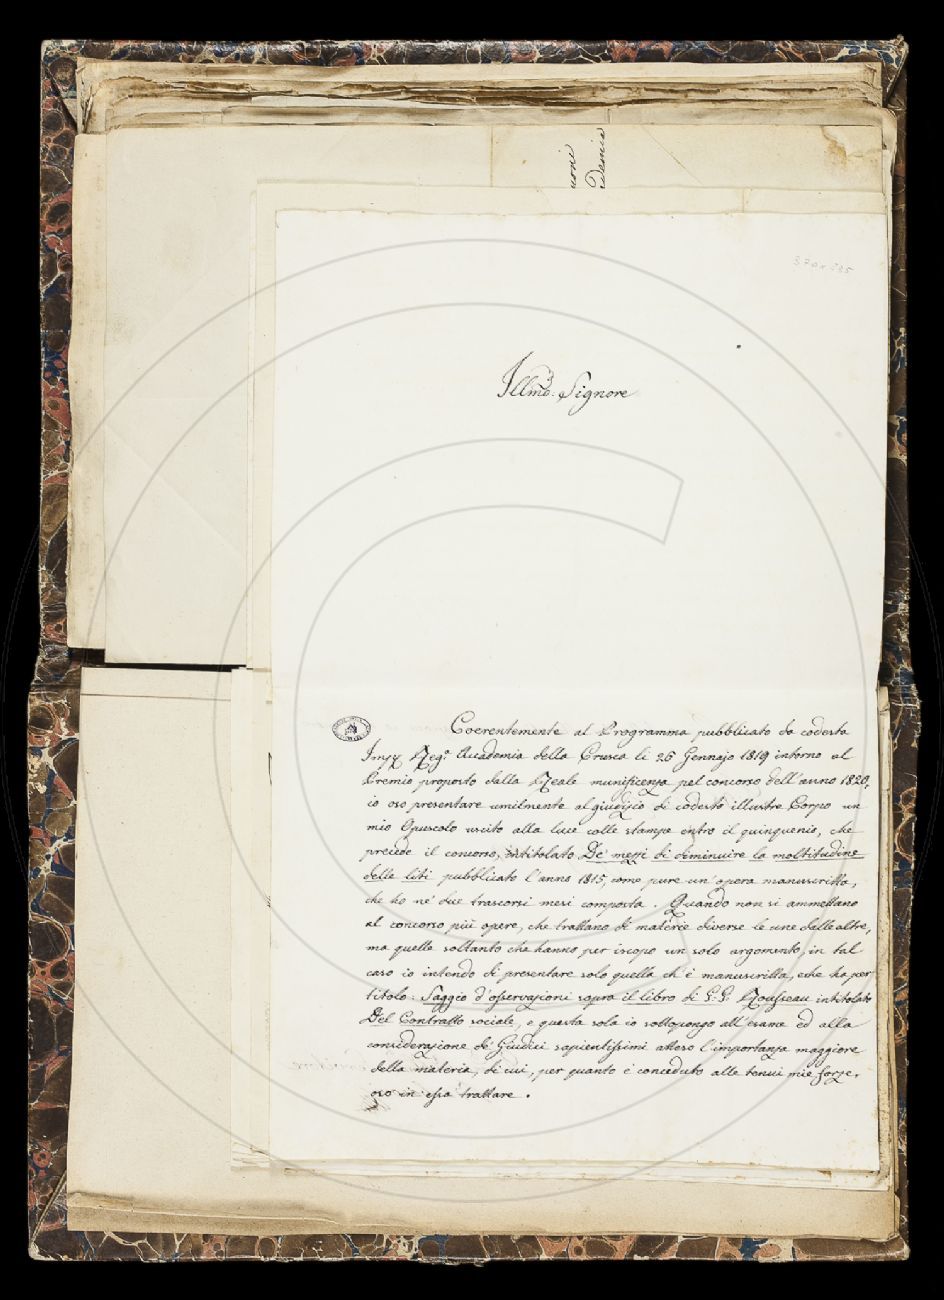 urni
demia
370 x 235
Illmo. Signore
Coerentemente al Programma pubblicato da codesta
Imp. Reg.ª Accademia della Crusca li 26 Gennajo 1819 intorno al
Premio proposto dalla Reale munificenza pel concorso dell'anno 1820,
io oso presentare umilmente al giudizio di codesto illustre Corpo un
mio Opuscolo uscito alla luce colle stampe entro il quinquenio, che
precede il concorso, intitolato De' mezzi di diminuire la moltitudine
delle liti pubblicato l'anno 1815, come pure un'opera manuscritta,
che ho ne' due trascorsi mesi composta. Quando non si ammettano
al concorso più opere, che trattano di materie diverse le une dalle altre,
ma quelle soltanto che hanno per iscopo un solo argomento, in tal
caso io intendo di presentare solo quella ch'è manuscritta, e che ha per
titolo: Saggio d'osservazioni sopra il libro di G. G. Rousseau intitolato
Del Contratto sociale, e questa sola io sottopongo all'esame ed alla
considerazione de' Giudici sapientissimi atteso l'importanza maggiore
della materia, di cui, per quanto è conceduto alle tenui mie forze,
oso in essa trattare.